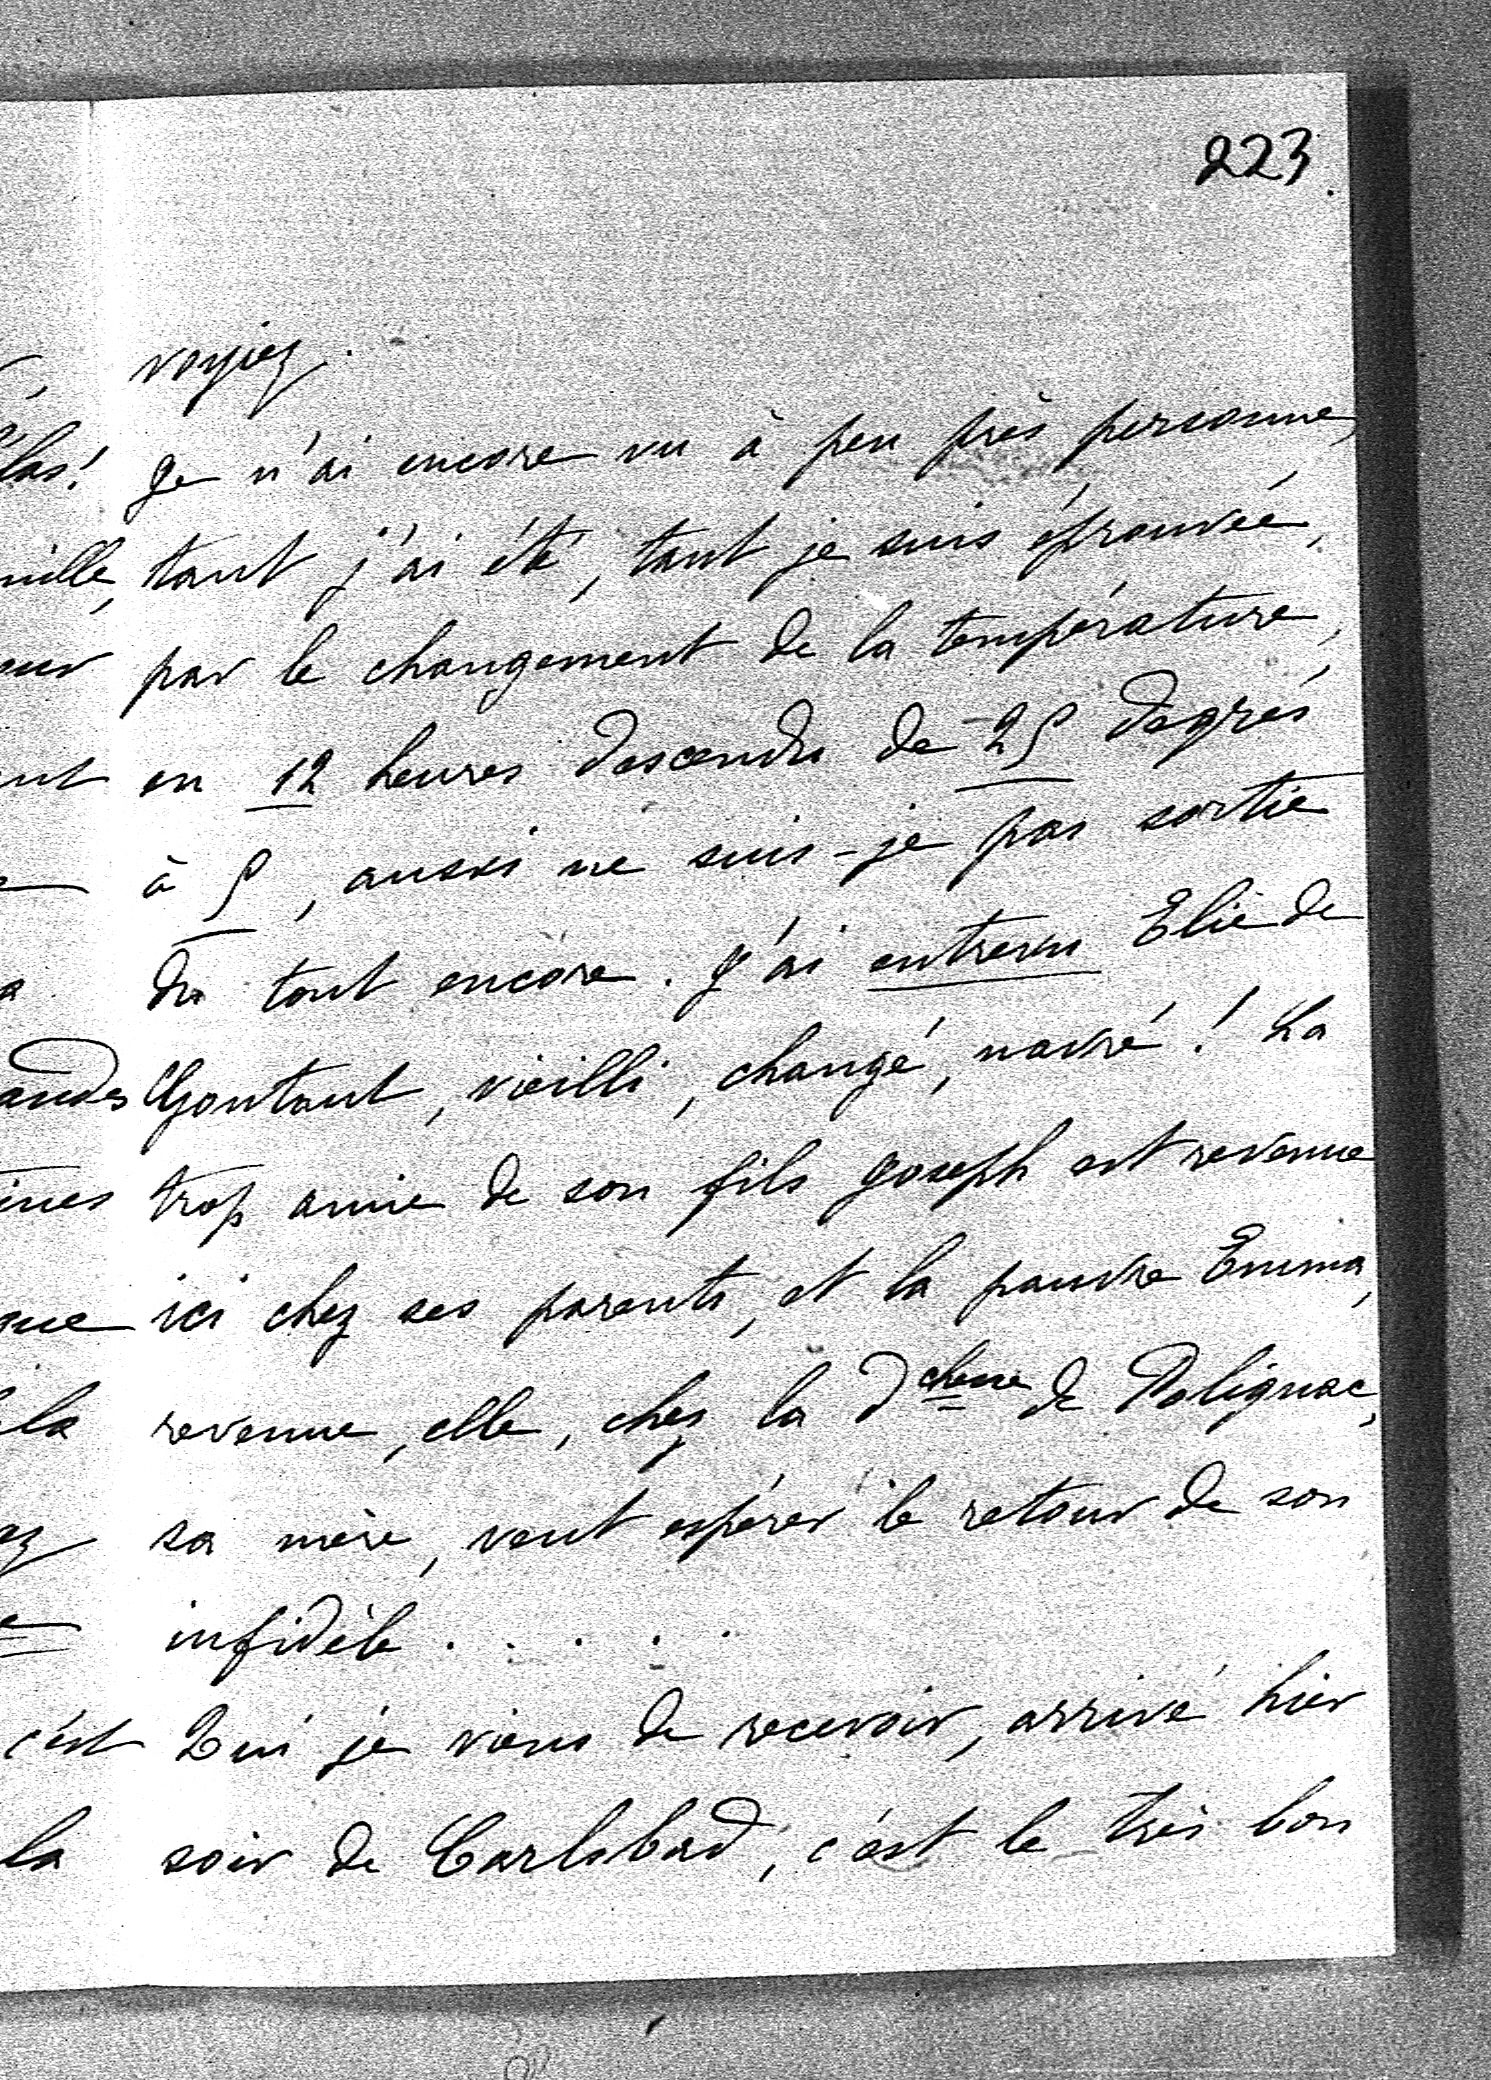 223.
voyiez.
las! Je n'ai encore vu à peu près personne,
mille, tant j'ai été, tant je suis éprouvée,
our par le changement de la température,
ent en 12 heures descendu de 25 degrés
à 5, aussi ne suis-je pas sortie
du tout encore. J'ai entrevu Elie de
andes Gontaut, vieilli, changé, navré! La
ines trop amie de son fils Joseph est revenue
que ici chez ses parents, et la pauvre Emma,
la revenue, elle, chez la Dchesse de Polignac,
ez sa mère, veut espérer le retour de son
infidèle . . . . .
c'est Qui je viens de recevoir, arrivé hier
la soir de Carlsbad, c'est le très bon